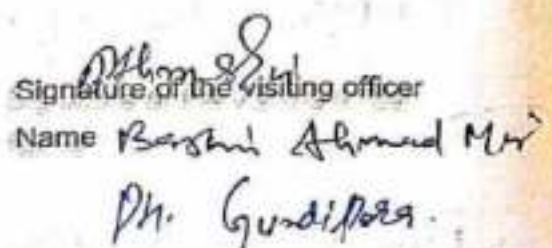 Signature of the visiting officer
Name Bashir Ahmad Mir
PH. Gundipora.